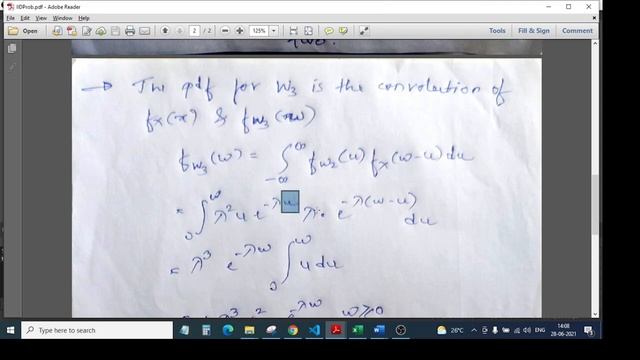 IIDProb.pdf - Adobe Reader
File Edit View Window Help
2 / 2 125% Tools Fill & Sign Comment
two.
→ The pdf for W₃ is the convolution of
fx(x) & fw₃(w)
fw₃(w) = ∫_{-∞}^{∞} fw₂(u) fx(w-u) du
= ∫_0^w λ² u e^{-λu} λ. e^{-λ(w-u)} du
= λ³ e^{-λw} ∫_0^w u du
λ³ w² e^{-λw} w≥0
Type here to search 26°C ENG 14:08
28-06-2021